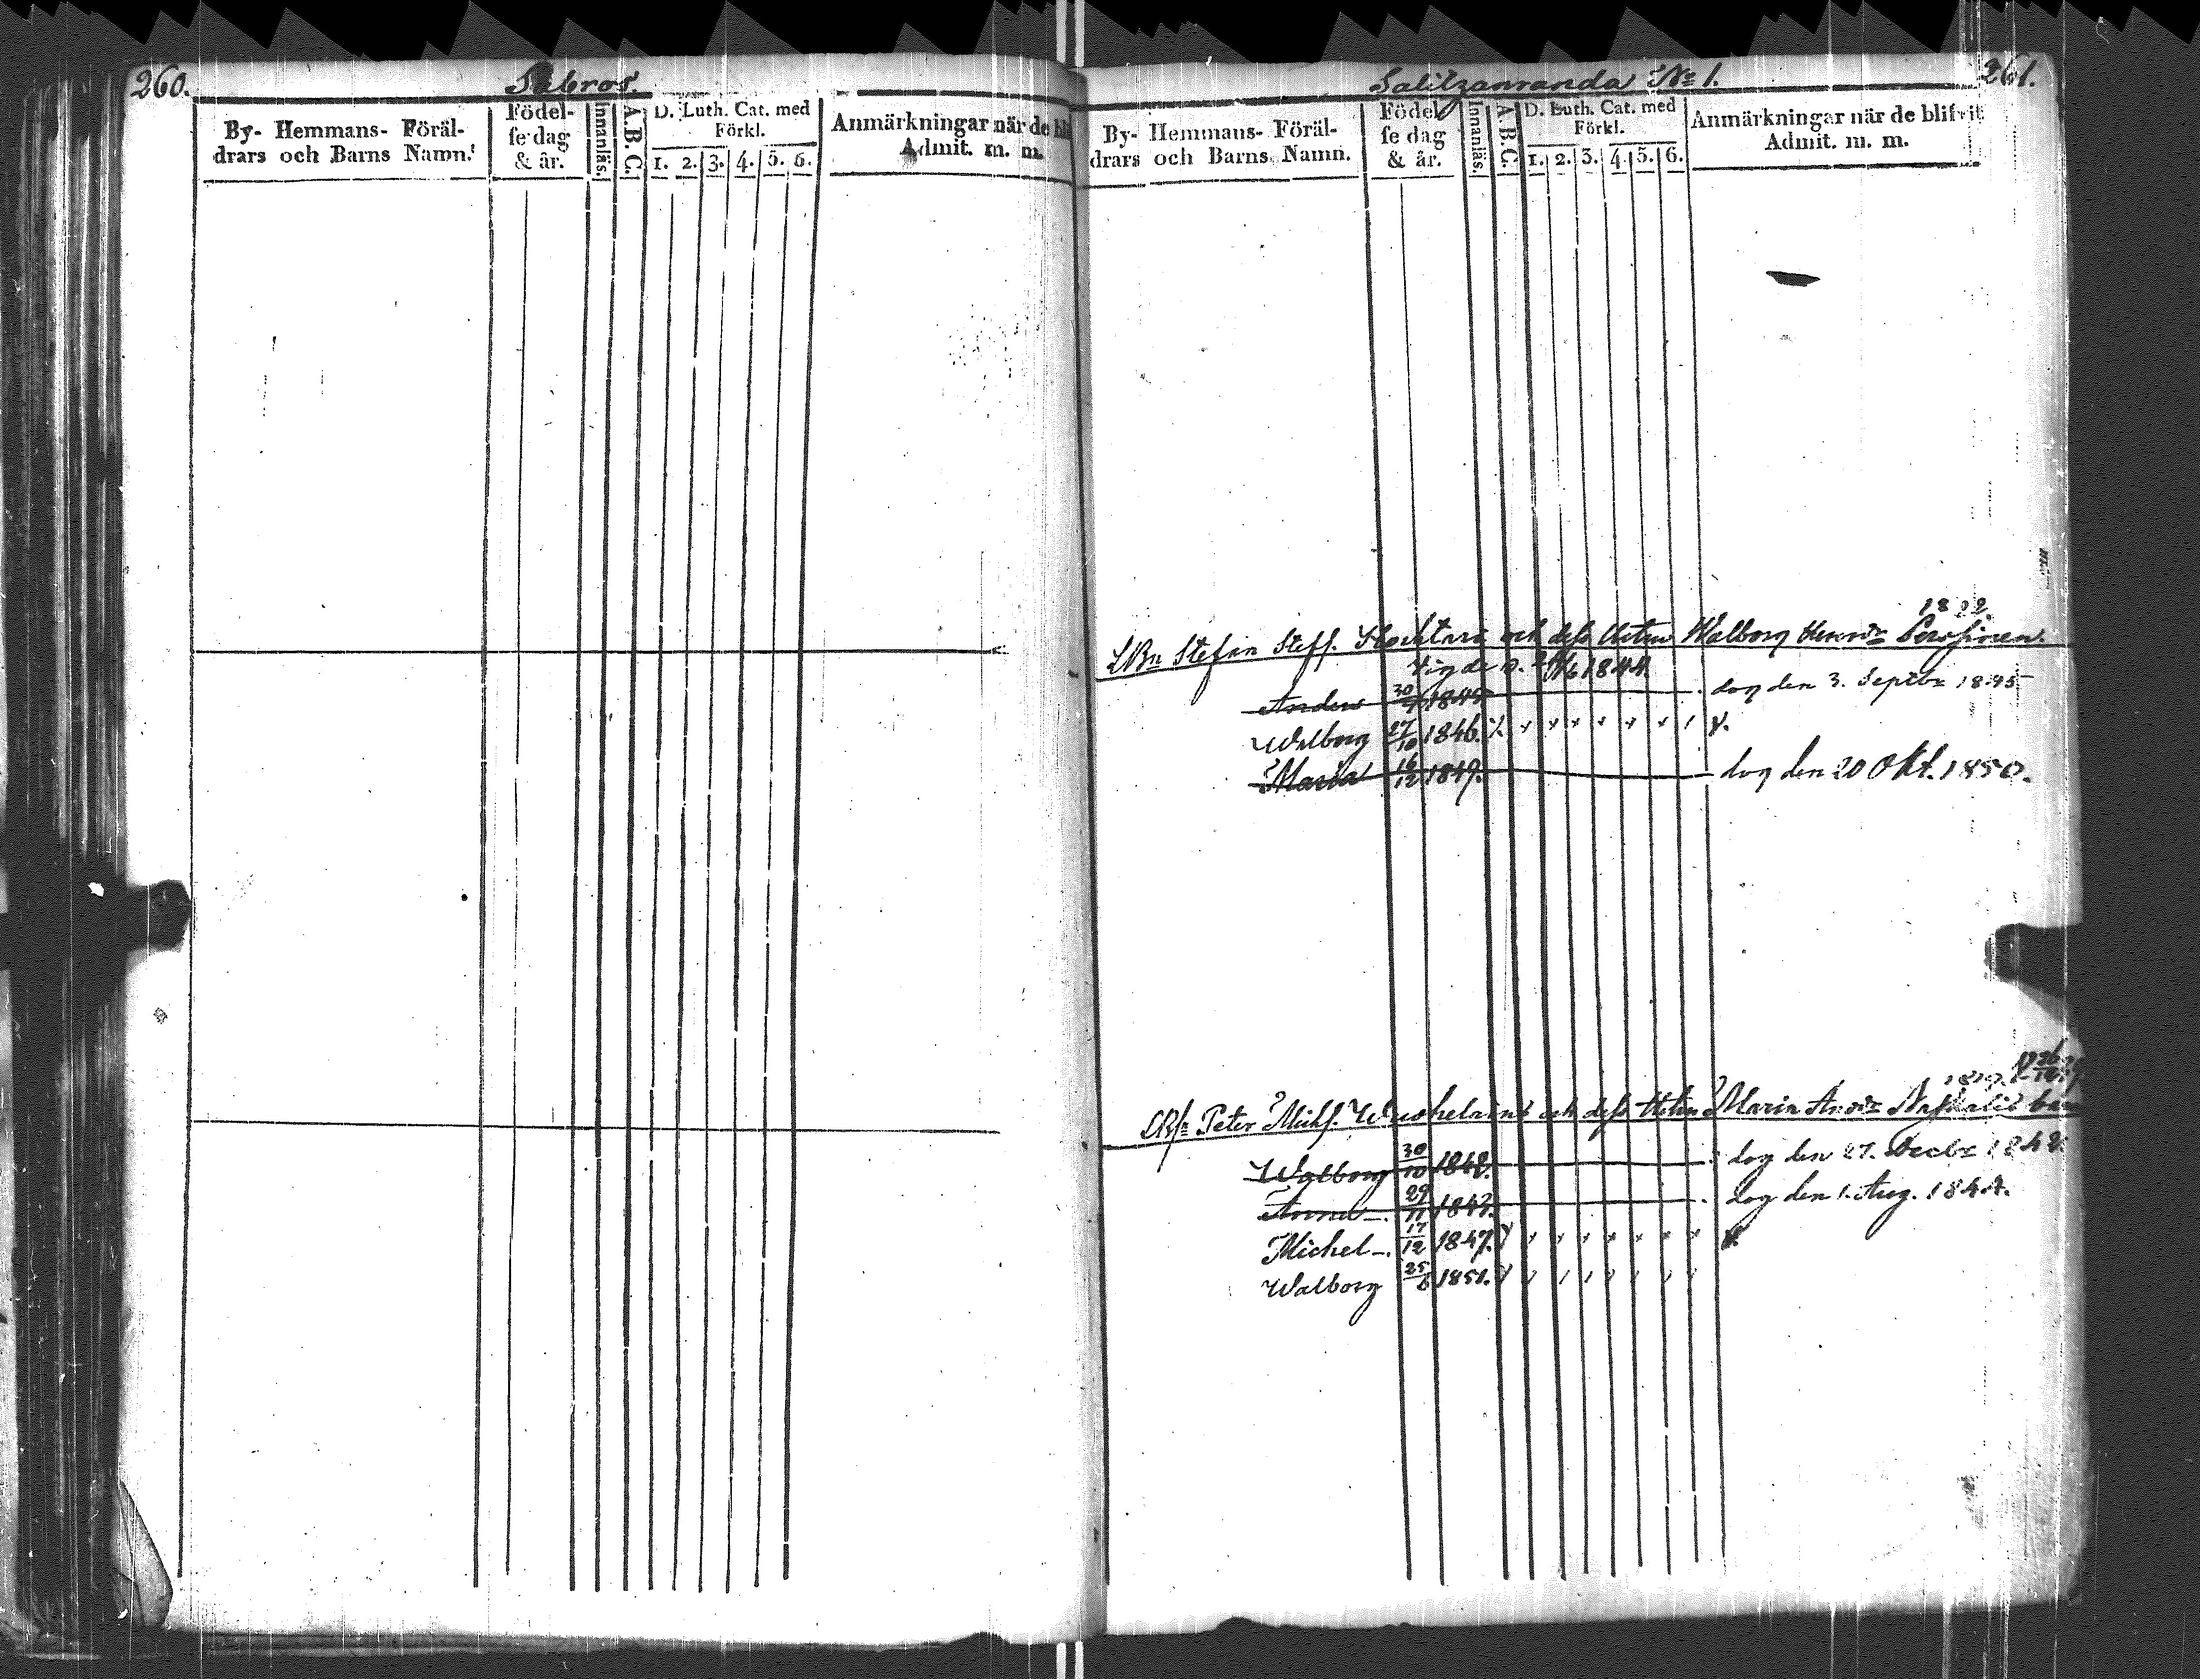 260.
Sabros.
By- Hemmans- Föräl-
drars och Barns Namn.
Födel-
se dag
& år.
Innanläs.
A. B. C.
D. Luth. Cat. med
Förkl.
1. 2. 3. 4. 5. 6.
Anmärkningar när de bli
Admit. m. m.
Salitzanranda No 1.
261.
By- Hemmans- Föräl-
drars och Barns Namn.
Födel
se dag
& år.
Innanläs.
A. B. C.
D. Luth. Cat. med
Förkl.
1. 2. 3. 4. 5. 6.
Anmärkningar när de blifvit
Admit. m. m.
Stefan Steff. och dess Walborg
1844.
Anders 30 1845 dog den 3. Septbr 1845
Walborg 27/10 1846.
Maria 16/12 1849. dog den 20 Okt. 1850.
Peter Mich. och dess Maria
Walborg 30/10 1842. dog den 27. Decbr 1842.
Anna 29/11 1843. dog den 1. Aug. 1844.
Michel 17/12 1847.
Walborg 25 1851.